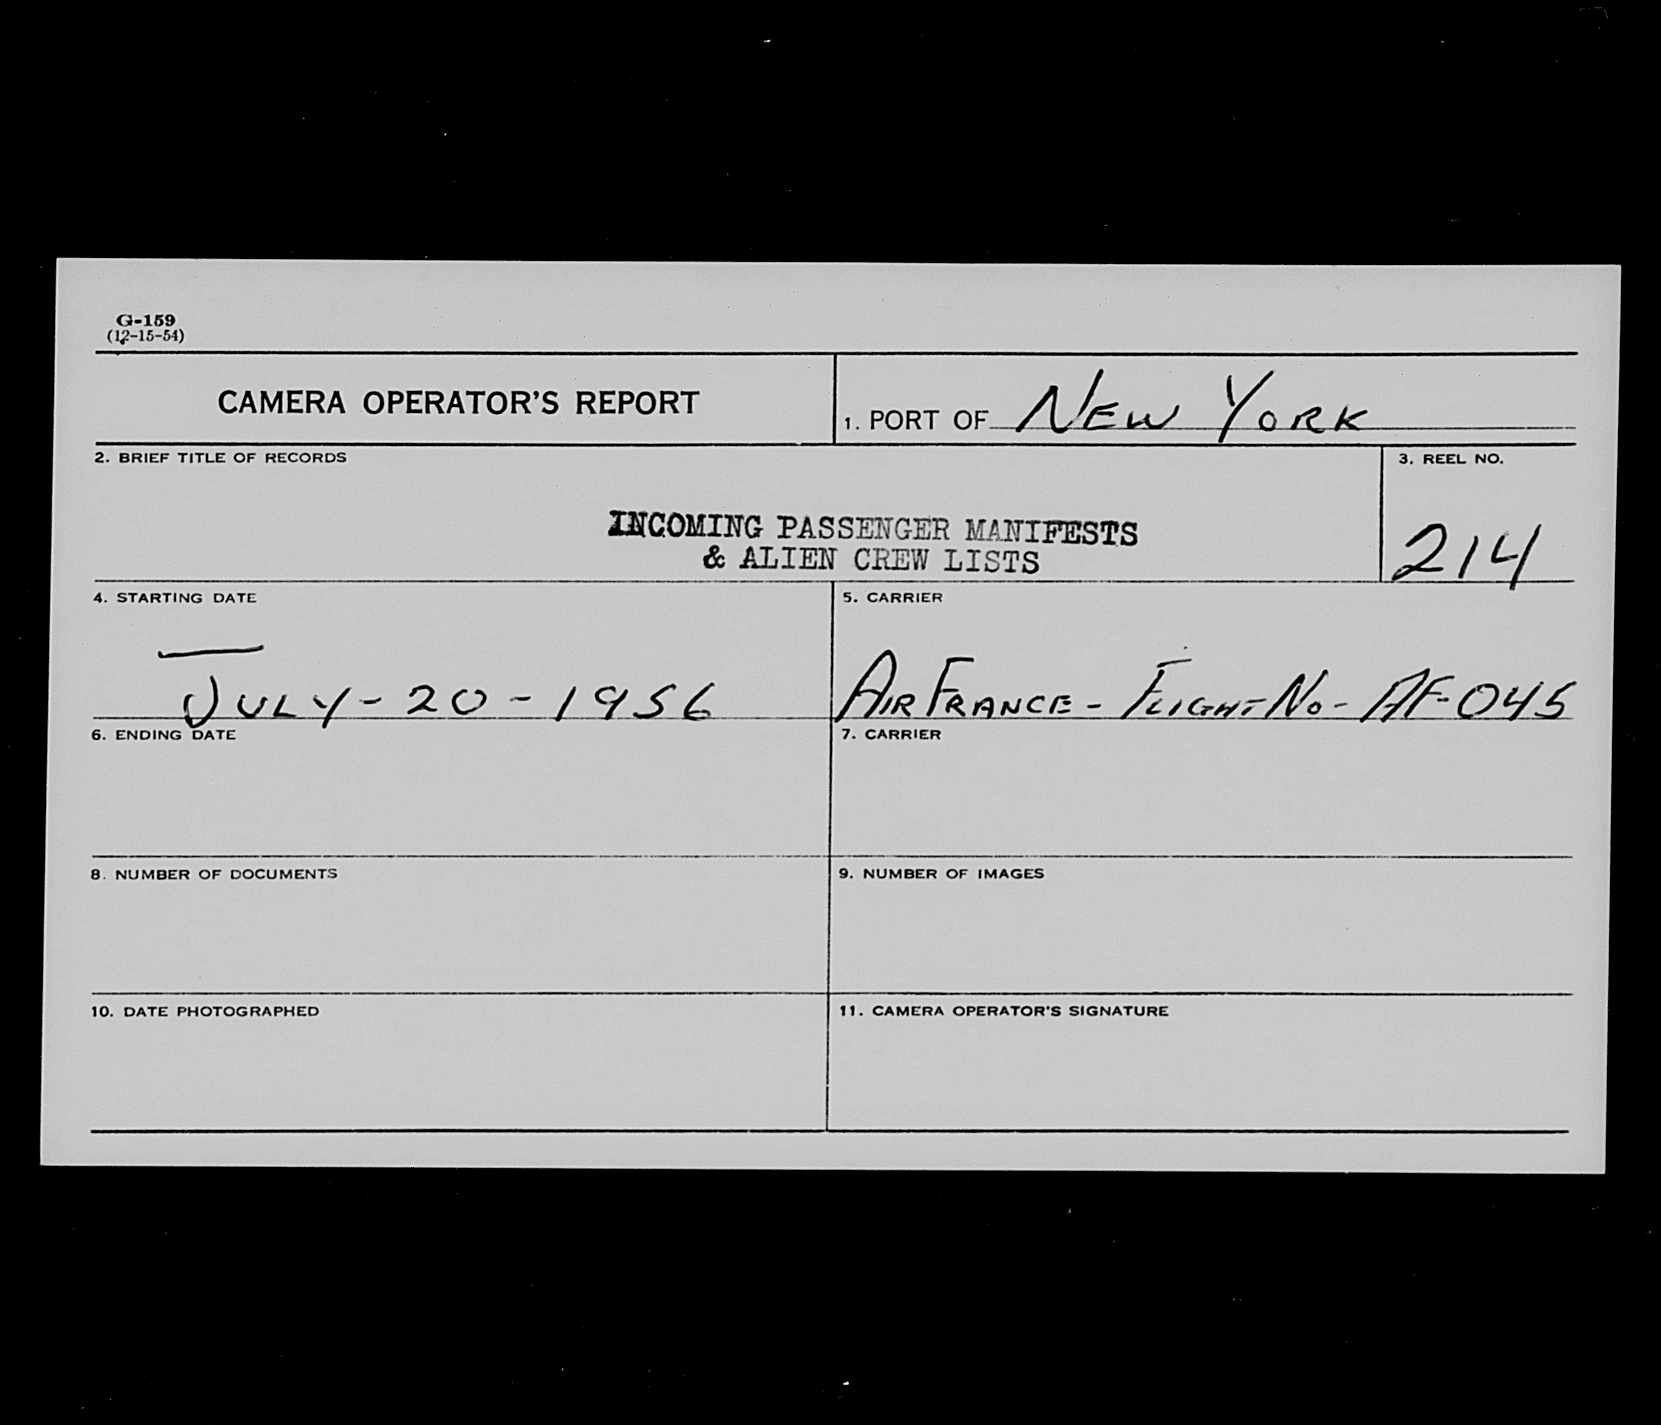 G-159
(12-15-54)
CAMERA OPERATOR'S REPORT
1. PORT OF NEW YORK
2. BRIEF TITLE OF RECORDS
INCOMING PASSENGER MANIFESTS
& ALIEN CREW LISTS
3. REEL NO.
214
4. STARTING DATE
JULY-20-1956
5. CARRIER
AIR FRANCE - FLIGHT No - AF-045
6. ENDING DATE
7. CARRIER
8. NUMBER OF DOCUMENTS
9. NUMBER OF IMAGES
10. DATE PHOTOGRAPHED
11. CAMERA OPERATOR'S SIGNATURE